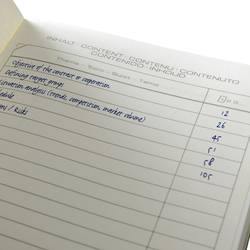 INHALT · CONTENT · CONTENU · CONTENUTO
CONTENIDO · INHOUD
Thema · Topic · Sujet · Tema
Objective of the contract or cooperation 12
Defining target groups 26
Situation analysis (trends, competition, market volume) 45
51
/ Risks 58
105